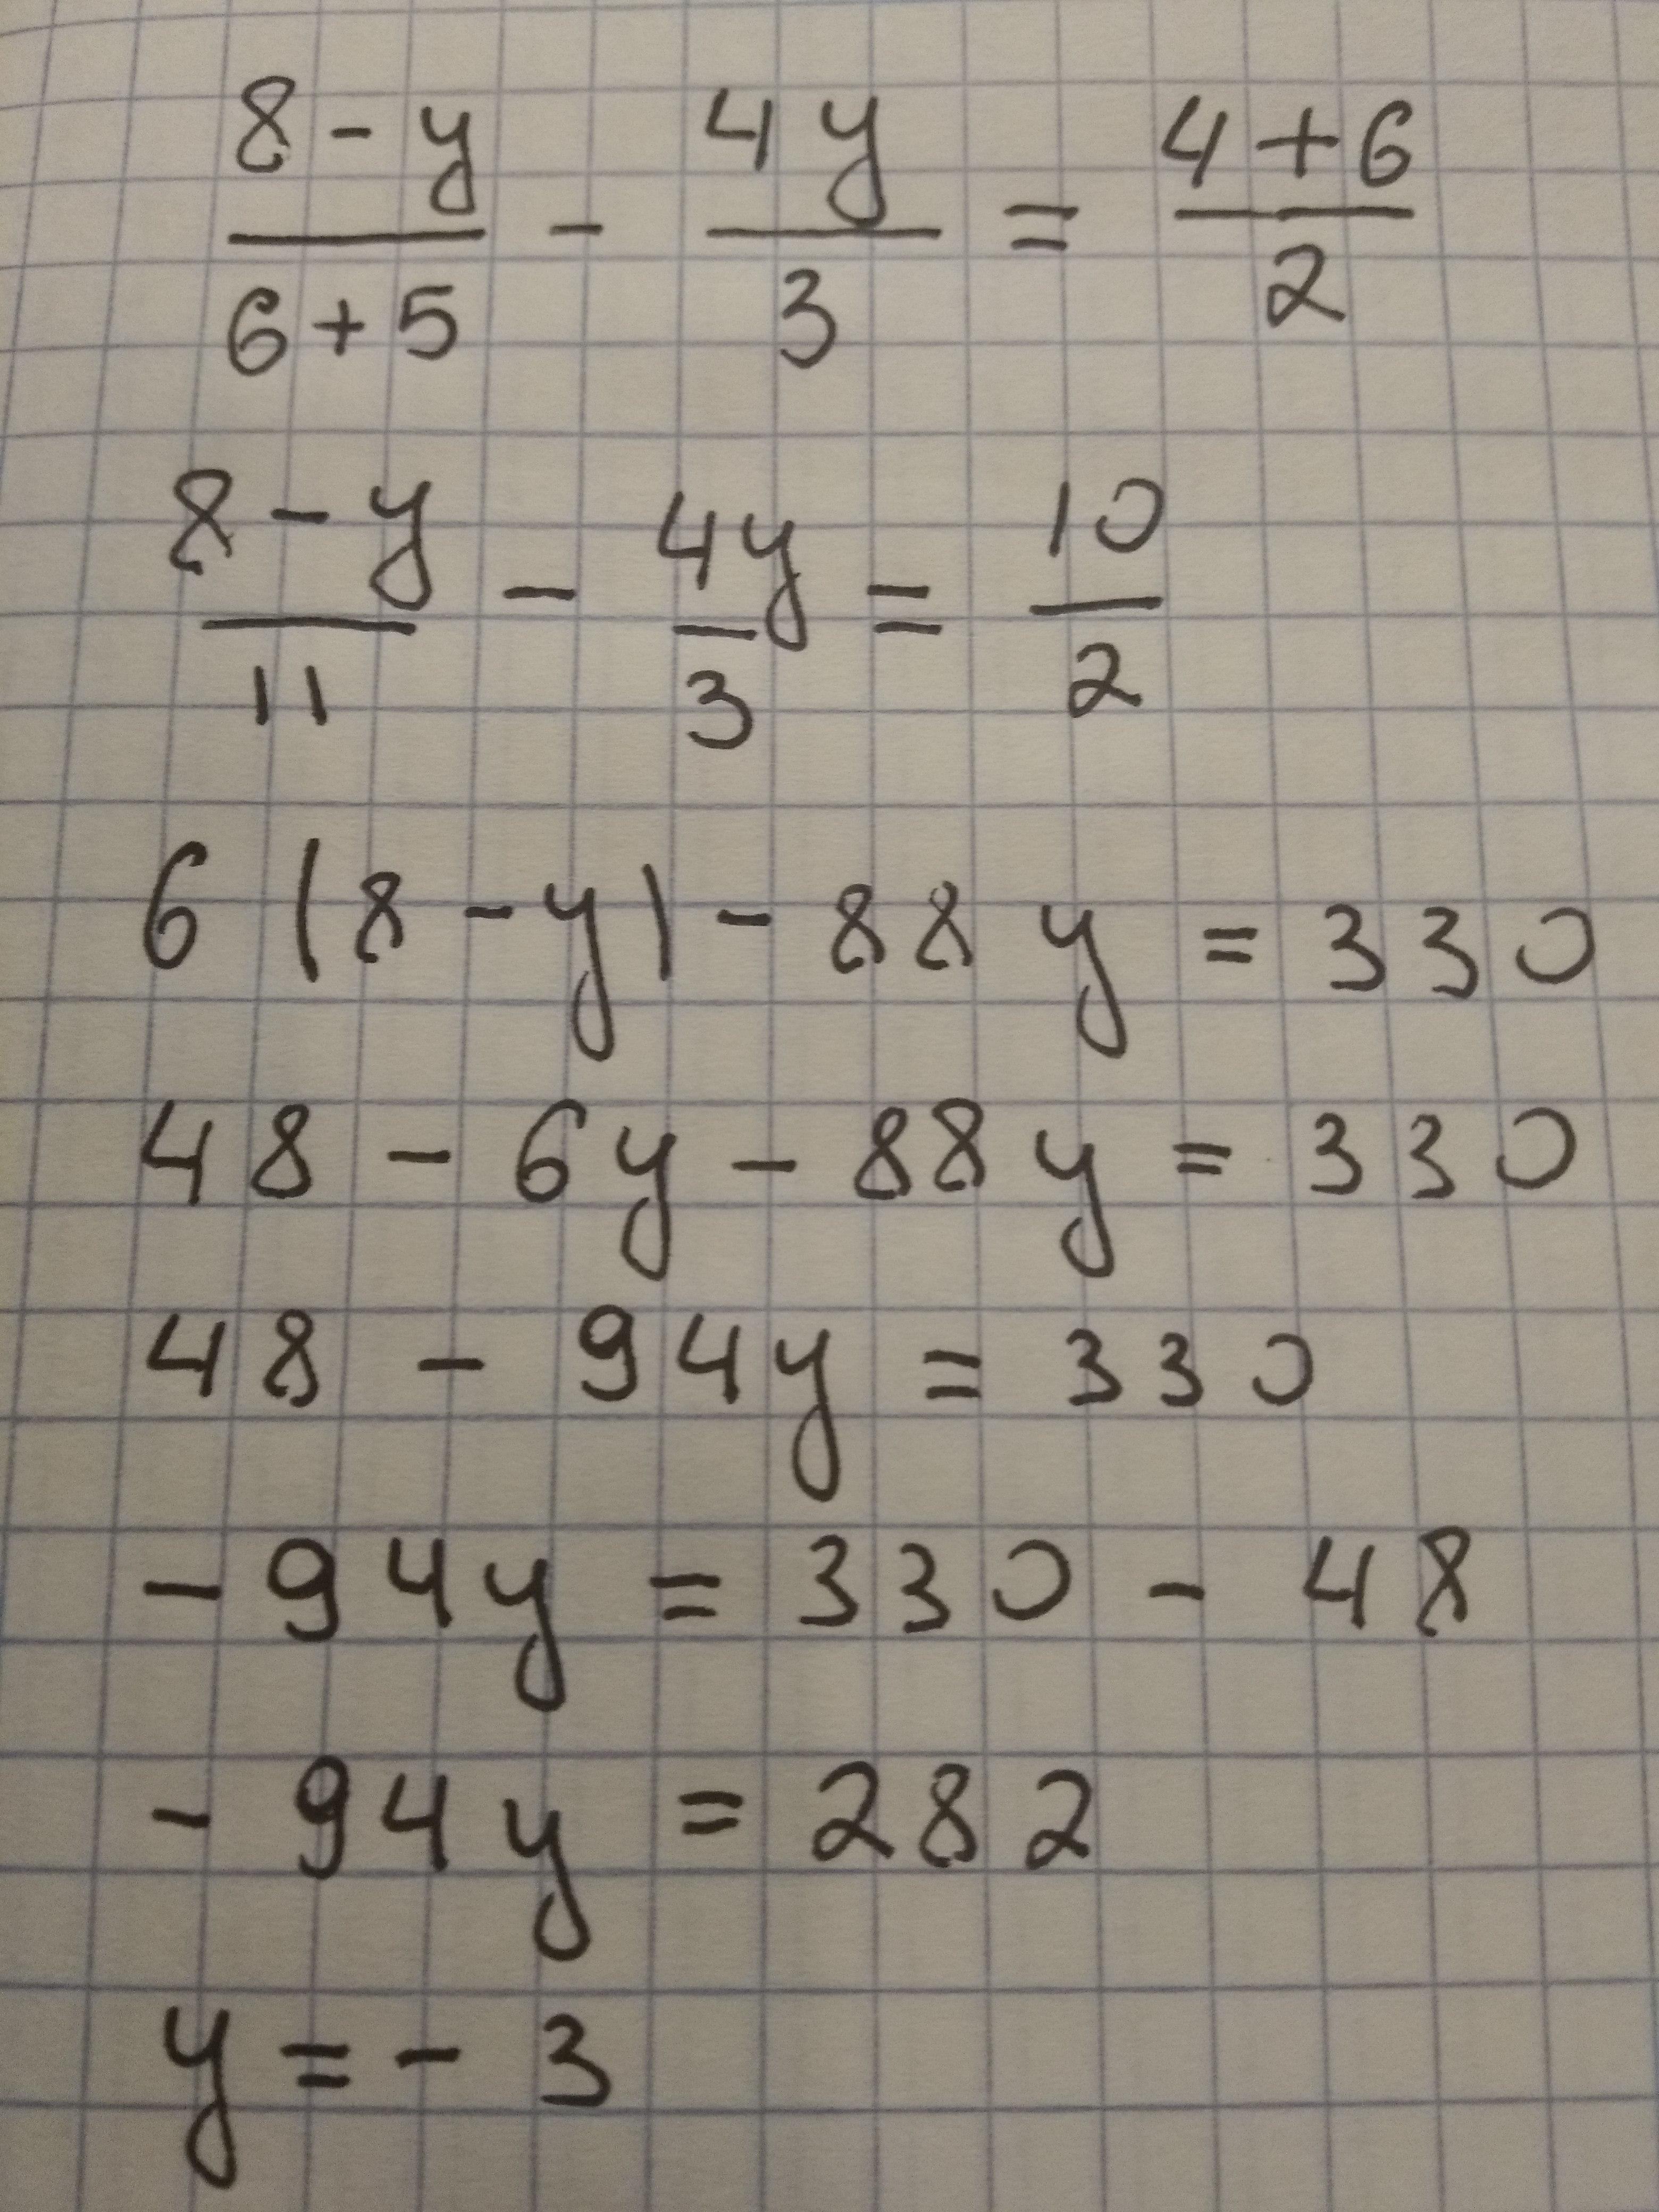 8 - y / 6 + 5 - 4y / 3 = 4 + 6 / 2
8 - y / 11 - 4y / 3 = 10 / 2
6 (8 - y) - 88y = 330
48 - 6y - 88y = 330
48 - 94y = 330
- 94y = 330 - 48
- 94y = 282
y = - 3